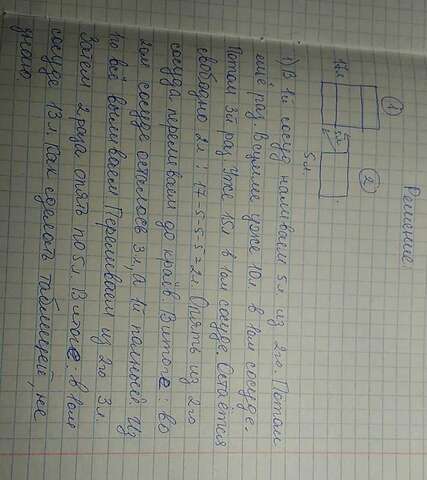 Решение.
① ②
17л 5л 5л.
1) В 1й сосуд наливаем 5л из 2го. Потом
ещё раз. В сумме уже 10л в 1ом сосуде.
Потом 3й раз. Уже 15л в 1ом сосуде. Остаётся
свободно 2л: 17-5-5-5=2л. Опять из 2го
сосуда переливаем до краёв. В итоге: во
2ом сосуде осталось 3л, а 1й полный. Из
1го всё выливаем. Переливаем из 2го 3л.
Затем 2 раза опять по 5л. В итоге: в 1ом
сосуде 13л. Как сделать таблицей, не
знаю.